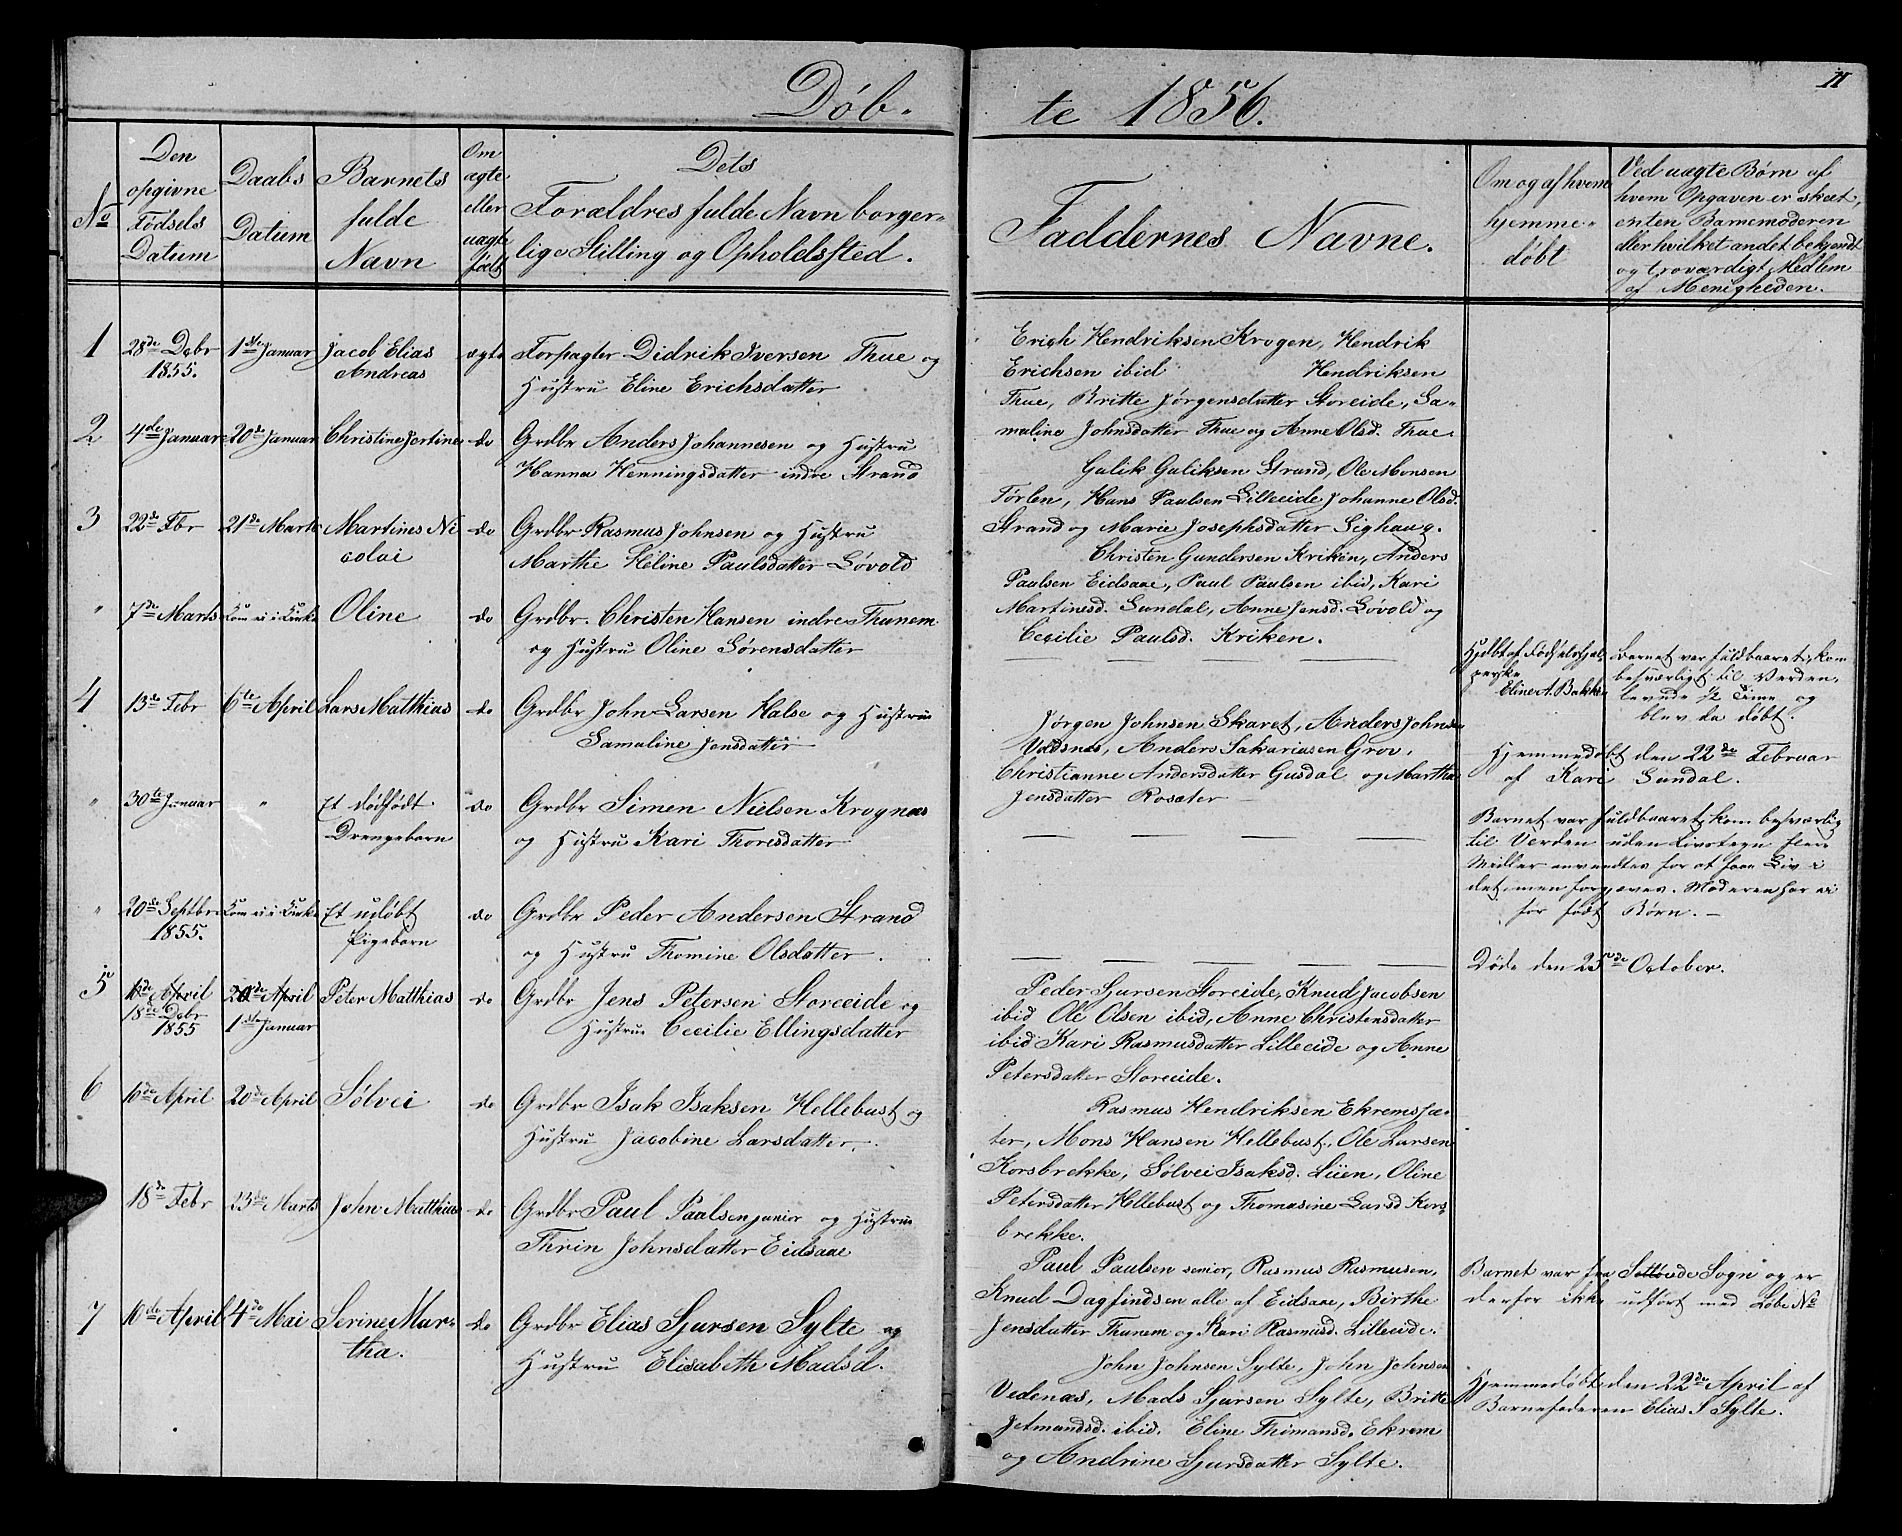 Døb-
te 1856.
11
No
Den
opgivne
Fødsels
Datum
Daabs
Datum
Barnets
fulde
Navn
Om
ægte
eller
uægte
født
Dets
Forældres fulde Navn borger-
lige Stilling og Opholdssted.
Faddernes Navne.
Om og af hvem
hjemme-
døbt
Ved uægte Børn af
hvem Opgaven er skeet,
enten Barnemoderen
eller hvilket andet bekjendt
og troværdigt Medlem
af Menigheden.
1 28de Dcbr 1ste Januar Jacob Elias ægte Forpagter Didrik Iversen Thue og
1855. Andreas Hustru Eline Erichsdatter
Erich Hendriksen Krogen, Hendrik
Erichsen ibid Hendriksen
Thue, Britte Jørgensdatter Storeide, Sa-
maline Johnsdatter Thue og Anne Olsd. Thue.
2 4de Januar 20de Januar Christine Jertine do Grdbr Anders Johannesen og Hustru
Hanna Henningsdatter indre Strand
Gulik Guliksen Strand, Ole Monsen
Førlen, Hans Paulsen Lilleeide Johanne Olsd.
Strand og Marie Josephsdatter Sighaug.
3 22de Fbr 21de Marts Martines Ni do Grdbr Rasmus Johnsen og Hustru
colai Marthe Heline Paulsdatter Løvold
Christen Gundersen Kriken, Anders
Paulsen Eidsaae, Paul Paulsen ibid, Kari
Martinesd. Sundal, Anne Jensd. Løvold og
Cecilie Paulsd. Kriken.
" 7de Marts Kom ei i Kirke Oline do Grdbr. Christen Hansen indre Thunem
og Hustru Oline Sørensdatter
Hjdbt af Fødselshjel-
perske
Eline A. Bakke
Barnet var fuldbaaret, kom
besværligt til Verden,
levede ½ Time og
blev da døbt.
4 13de Febr 6te April Lars Matthias do Grdbr John Larsen Halse og Hustrue
Samaline Jensdatter
Jørgen Johnsen Skaret, Anders Johnsen
Vedsnes, Anders Sakariasen Grov,
Christianne Andersdatter Gusdal og Martha
Jensdatter Rosæter
Hjemmedøbt den 22de Februar
af Kari Sundal.
" 30te Januar " Et dødfødt do Grdbr Simen Nielsen Krognæs
Drengebarn og Hustru Kari Thoresdatter
Barnet var fuldbaaret, kom besværlig
til Verden uden Livstegn flere
Midler anvendtes for at faae Liv i
det, men forgjæves. Moderen har ei
før født Børn.
" 20de Septbr Kom ei i Kirke Et udøbt do Grdbr Peder Andersen Strand
1855. Pigebarn og Hustru Thomine Olsdatter.
Døde den 25de October.
5 10de April 20de April Peter Matthias do Grdbr Jens Petersen Storeeide og
18de Dcbr 1ste Januar Hustrue Cecilie Ellingsdatter
1855
Peder Sjursen Storeide, Knud Jacobsen
ibid Ole Olsen ibid, Anne Christensdatter
ibid Kari Rasmusdatter Lilleeide og Anne
Petersdatter Storeeide.
6 10de April 20de April Sølvei do Grdbr Isak Isaksen Hellebust og
Hustru Jacobine Larsdatter.
Rasmus Hendriksen Ekremsæ-
ter, Mons Hansen Hellebust, Ole Larsen
Korsbrekke, Sølvei Isaksd. Lüen, Oline
Petersdatter Hellebust og Thomasine Larsd Kors-
brekke.
18de Febr 23de Marts John Matthias do Grdbr Paul Paulsen junior og Hustrue
Thrin Johnsdatter Eidsaae
Paul Paulsen senior, Rasmus Rasmusen,
Knud Dagfindsen alle af Eidsaae, Birthe
Jensdatter Thunem og Kari Rasmusd. Lilleeide.
Barnet var fra Sogn og er
derfor ikke udført med Løbe No
7 10de April 4de Mai Serine Mar- do Grdbr Elias Sjursen Sylte og
tha. Hustru Elisabeth Madsd.
John Johnsen Sylte, John Johnsen
Vedenæs, Mads Sjursen Sylte, Britte
Jetmundsd. ibid. Eline Thimansd. Ekrem
og Andrine Sjursdatter Sylte.
Hjemmedøbt den 22de April af
Barnefaderen Elias S Sylte.